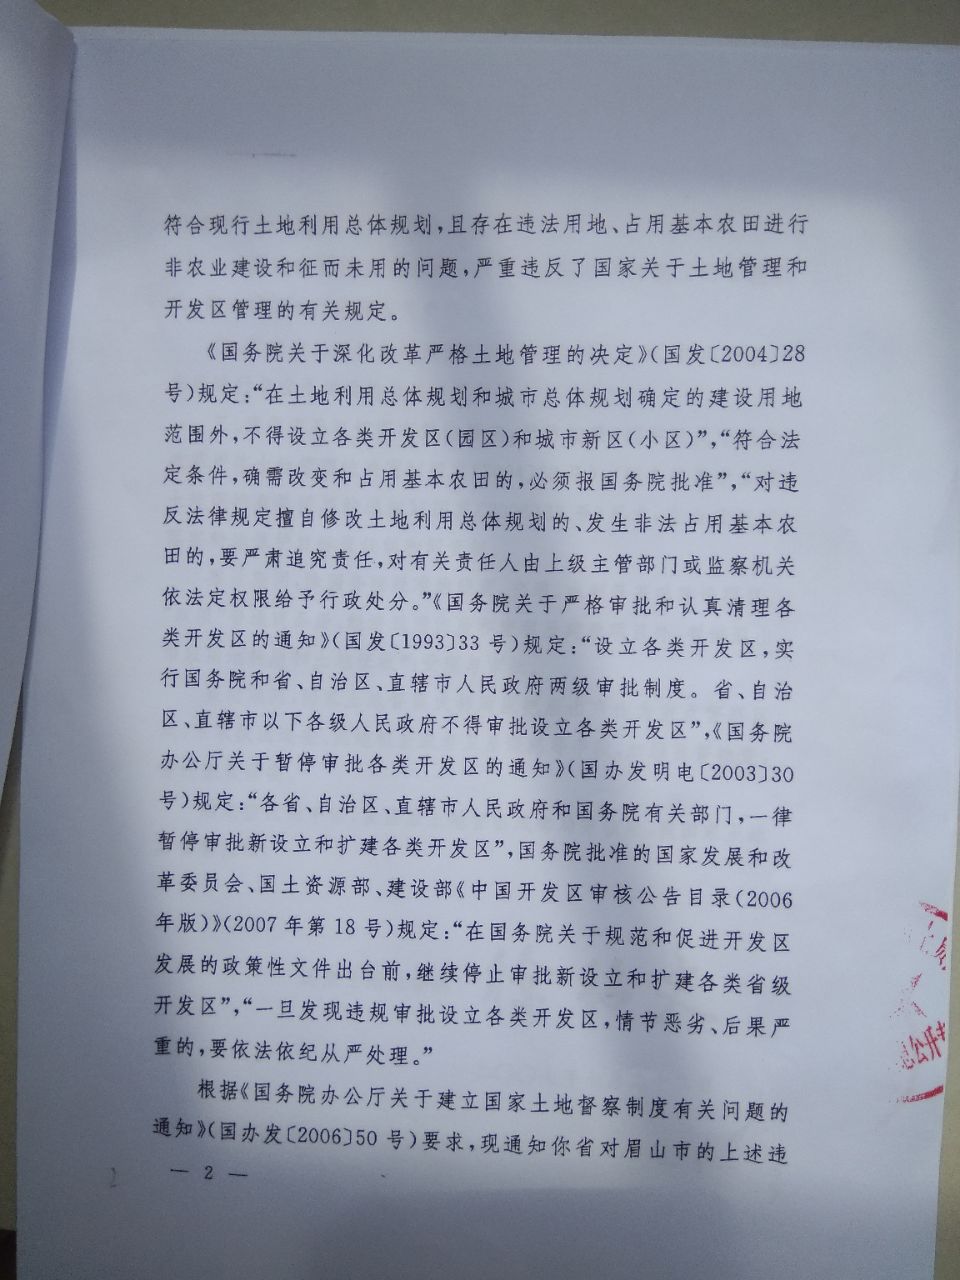 符合现行土地利用总体规划,且存在违法用地、占用基本农田进行
非农业建设和征而未用的问题,严重违反了国家关于土地管理和
开发区管理的有关规定。
《国务院关于深化改革严格土地管理的决定》(国发〔2004〕28
号)规定:“在土地利用总体规划和城市总体规划确定的建设用地
范围外,不得设立各类开发区(园区)和城市新区(小区)”,“符合法
定条件,确需改变和占用基本农田的,必须报国务院批准”,“对违
反法律规定擅自修改土地利用总体规划的、发生非法占用基本农
田的,要严肃追究责任,对有关责任人由上级主管部门或监察机关
依法定权限给予行政处分。”《国务院关于严格审批和认真清理各
类开发区的通知》(国发〔1993〕33 号)规定:“设立各类开发区,实
行国务院和省、自治区、直辖市人民政府两级审批制度。省、自治
区、直辖市以下各级人民政府不得审批设立各类开发区”,《国务院
办公厅关于暂停审批各类开发区的通知》(国办发明电〔2003〕30
号)规定:“各省、自治区、直辖市人民政府和国务院有关部门,一律
暂停审批新设立和扩建各类开发区”,国务院批准的国家发展和改
革委员会、国土资源部、建设部《中国开发区审核公告目录(2006
年版)》(2007 年第 18 号)规定:“在国务院关于规范和促进开发区
发展的政策性文件出台前,继续停止审批新设立和扩建各类省级
开发区”,“一旦发现违规审批设立各类开发区,情节恶劣、后果严
重的,要依法依纪从严处理。”
根据《国务院办公厅关于建立国家土地督察制度有关问题的
通知》(国办发〔2006〕50 号)要求,现通知你省对眉山市的上述违
— 2 —
公开